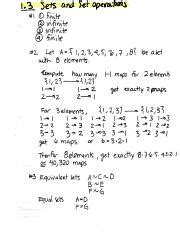 1.3 Sets and Set operations
#1 ① finite
② infinite
③ infinite
④ finite
#2. Let A = {1, 2, 3, 4, 5, 6, 7, 8} be a set
with 8 elements.
Compute how many 1-1 maps for 2 elements
{1, 2} → {1, 2}
1 → 1 1 → 2
2 → 2 2 → 1 get exactly 2
For 3 elements, {1, 2, 3} → {1, 2, 3}
1 → 1 1 → 1 1 → 2 1 → 2 1 → 3 1 → 3
get 6 or 6 = 3·2·1
Therefor 8 elements, get exactly 8·7·6·5·4·3·2·1
or 40,320 maps
#3 Equivalent sets A~C~D
B~E
F~G
Equal sets A=D
F=G